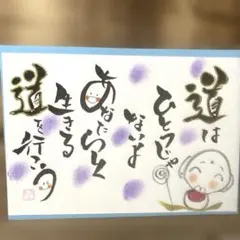 道は
ひとつじゃ
ないよ
あなたらしく
生きる
道を行こう